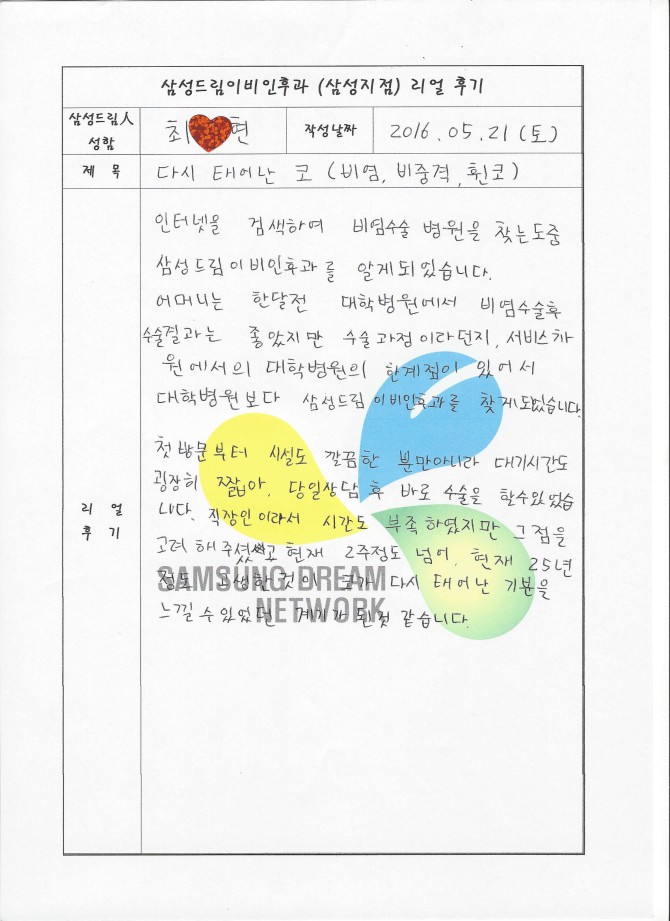 삼성드림이비인후과 (삼성지점) 리얼 후기
삼성드림人
성함
최 현
작성날짜
2016.05.21 (토)
제 목
다시 태어난 코 (비염, 비중격, 휜코)
리 얼
후 기
인터넷을 검색하여 비염수술 병원을 찾는도중
삼성드림이비인후과를 알게되었습니다.
어머니는 한달전 대학병원에서 비염수술후
수술결과는 좋았지만 수술과정이라던지, 서비스차
원에서의 대학병원의 한계점이 있어서
대학병원보다 삼성드림이비인후과를 찾게되었습니다.
첫방문부터 시설도 깔끔한 뿐만아니라 대기시간도
굉장히 짧아, 당일상담후 바로 수술을 할수있었습
니다. 직장인이라서 시간도 부족하였지만 그점을
고려해주셨고 현재 2주정도 넘어, 현재 25년
정도 고생한것이 코가 다시 태어난 기분을
느낄수있었던 계기가 된것 같습니다.
SAMSUNG DREAM
NETWORK